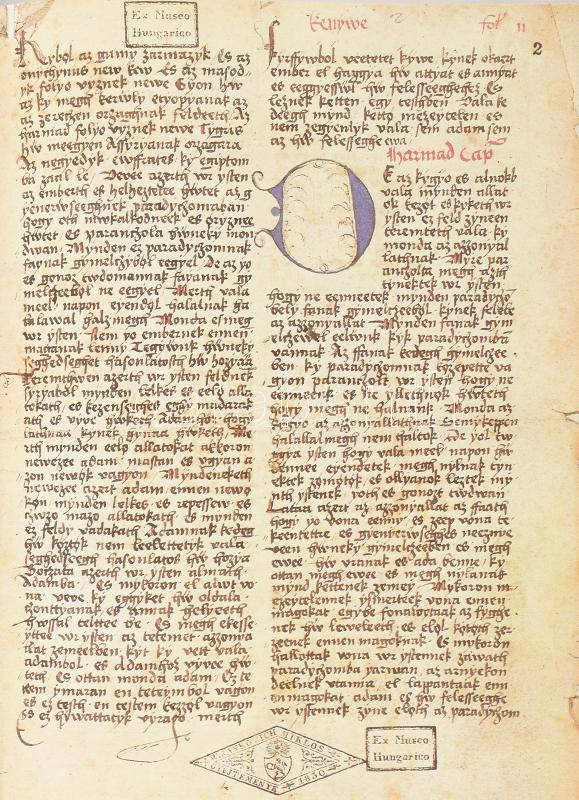 Ex Museo
Hungarico
Kenywe
fol. 11
2
Kyböl az gumy zarmazyk Es az
onychynus new kew Es az masod
yk folyo vyznek newe Gyon hw
az ky megh kerwly etyopyanak az
az zerezhen orzaghnak feldeeth Az
harmad folyo vyznek newe Tygris
hw meegyen Assyryanak orzagara
Az negyedyk ewffrates ky egiptom
ba zaal le Vevee azerth wr ysten
az emberth es helheztete hwtet az g
yenerwseeghnek paradychomaban
hogy oth mwkalkodneek es oryznee
hwtet Es paranchola hwneky mon
dwan Mynden ez paradychomnak
fayanak gymelchyböl eegyel De az yo
es gonoz twdomannak fayanak gy
melcheeböl ne eegyel Merth vala
meel napon eyendöl halalnak ha
lalawal halz megh Monda esmeg
wr ysten Nem yo embernek ennen
maganak lenny Tegywnk hwneky
seghedseghet hasonlatosth hw hozyaa
Teremthwen azerth wr ysten feldnek
syryaböl mynden lelket es eeld alla
tokath es kezenseghes eghy madarak
ath es vyve hwketh Adamhoz hogy
lathnaa kynek hynaa hwketh Me
rth mynden eeld allatokat akkoron
newezee adam mastan es vgyan a
zon newök vagyon Myndeneketh
newezee azert adam ennen newö
kön mynden lelkes es repessew es
mezö allatokath es mynden
ez feldy vadakath Adamnak kedeg
hw köztök nem keelettetyk vala
seghedseegh hasonlatos hw hozya
Borzata azerth wr ysten almath
Adamba Es mykoron el alwt vo
na veve ky eggyket hw oldala
zonttyanak es annak helyeeth
hwssal teltee be Es megh ekesse
ythee wr ysten az tetemet azzonya
llat zemeelben kyt ky vett vala
adambol es Adamhoz vyvee hw
teth Es ottan monda adam Ez te
tem ymaran en teteymböl vagon
es ez testh en testem bezzöl vagyon
es ez hywattatyk vyrago merth
fyrffywbol veetetet kywe kynek okaert
ember el haggya hw attyat es annyat
es eeggyeswl hw felesseeghehez Es
lesznek ketten egy testhben Vala ke
deegh mynd ketto mezeytelen es
nem zegyenlyk vala sem adam sem
az hw felesseghe ewa
Harmad Cap
De az kygyo es alnokb
vala mynden allat
ok kezöt es kyketh wr
ysten ez feld zyneen
teremteth vala ky
monda az azzonyal
lathnak Myre par
anczolta megh azth
tynektek wr ysten
hogy ne eenneetek mynden paradycho
bely fanak gymelczeeböl kynek felele
az azzonyallat Mynden fanak gym
elczeewel eelwnk kyk paradychomba
vannak Az ffanak kedegh gymelczee
ben ky paradychomnak közepette va
gyon paranczolt wr ysten hogy ne
eenneenk es ne yllethnök hwteeth
hogy megh ne halnank Monda az
kygyo az azzonyallathnak Semykeppen
halallal megh nem haltok De yol tw
ggya ysten hogy vala meel napon hw
bennee eyendetek megh nylnak tyn
ektek zömötök es ollyanok lezték my
nth ystenek yoth es gonozt twdwan
Lataa azert az azzonyallat az ffaath
hogy yo vona eenny es zeep vona te
keentettre es gyenyerwseeghes neeznye
veen hwneky gymelczeeben es megh
ewee hw vranak es ada benne ky
ottan megh ewee es megh nylanak
mynd kettönek zemey Mykoron me
zeytelennek ysmertek vona ennen
magokat egybe fonalottaak az fyghe
nek hw leweleeth es elöl kötöth zer
zeenek ennen magoknak Es mykoron
hallottak vona wr ystennek zawath
paradychomba yarwan az arnyekon
deelnek vtanna el lappantaak enn
enmagokat adam es hw felesseeghe
wr ystennek zyne elöth az paradychom
JANKOVICH MIKLOS
GYŰJTEMÉNYE 1830
Ex Museo
Hungarico